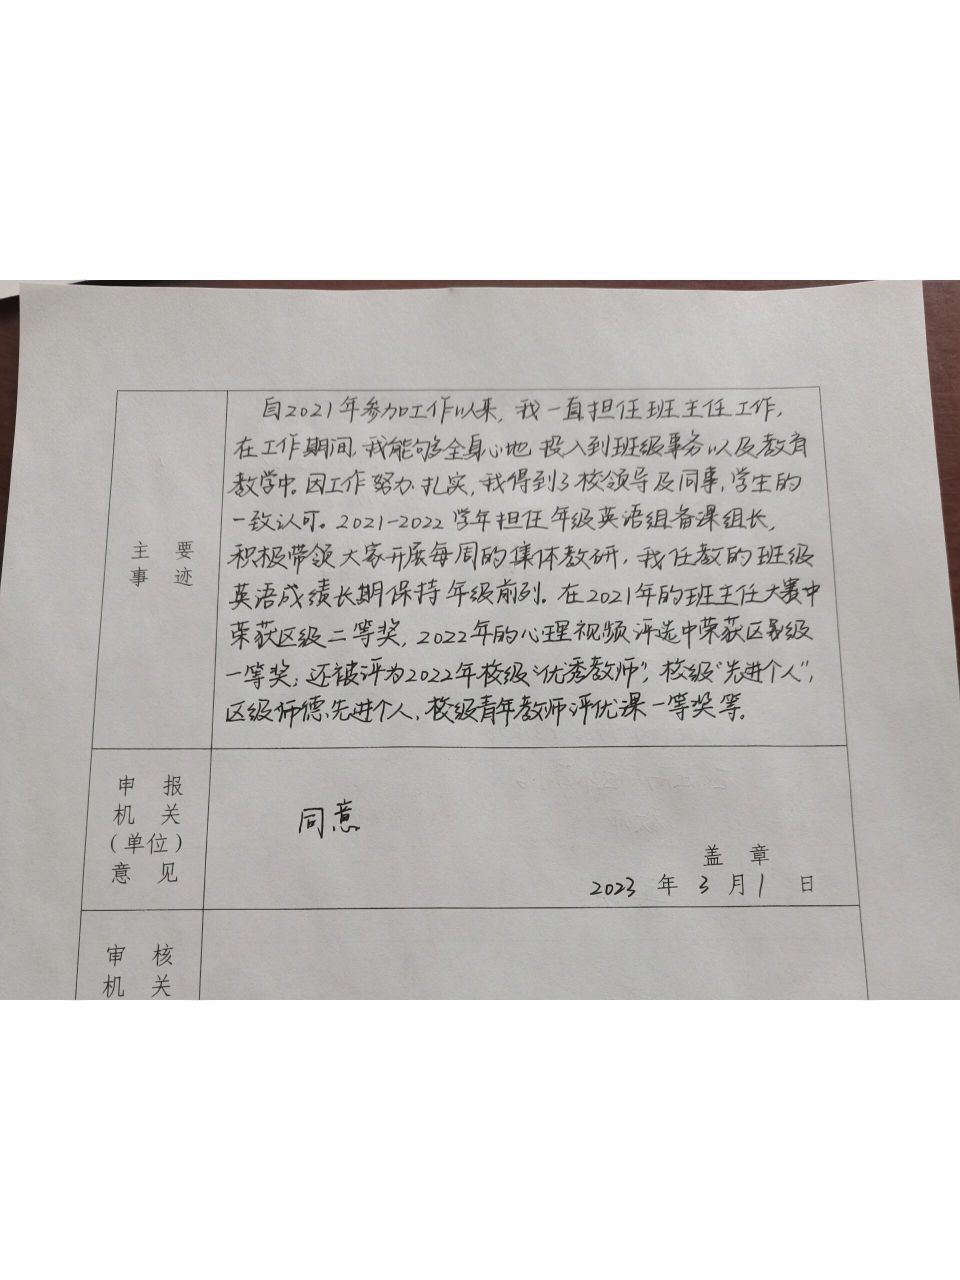 主 要
事 迹
自2021年参加工作以来,我一直担任班主任工作,
在工作期间,我能够全身心地投入到班级事务以及教育
教学中。因工作努力、扎实,我得到了校领导及同事、学生的
一致认可。2021-2022学年担任年级英语组备课组长,
积极带领大家开展每周的集体教研,我任教的班级
英语成绩长期保持年级前列。在2021年的班主任大赛中
荣获区级二等奖,2022年的心理视频评选中荣获区级
一等奖;还被评为2022年校级“优秀教师”,校级“先进个人”,
区级师德先进个人、校级青年教师评优课一等奖等。
申 报
机 关
(单位)
意 见
同意
盖 章
2023 年 3 月 1 日
审 核
机 关